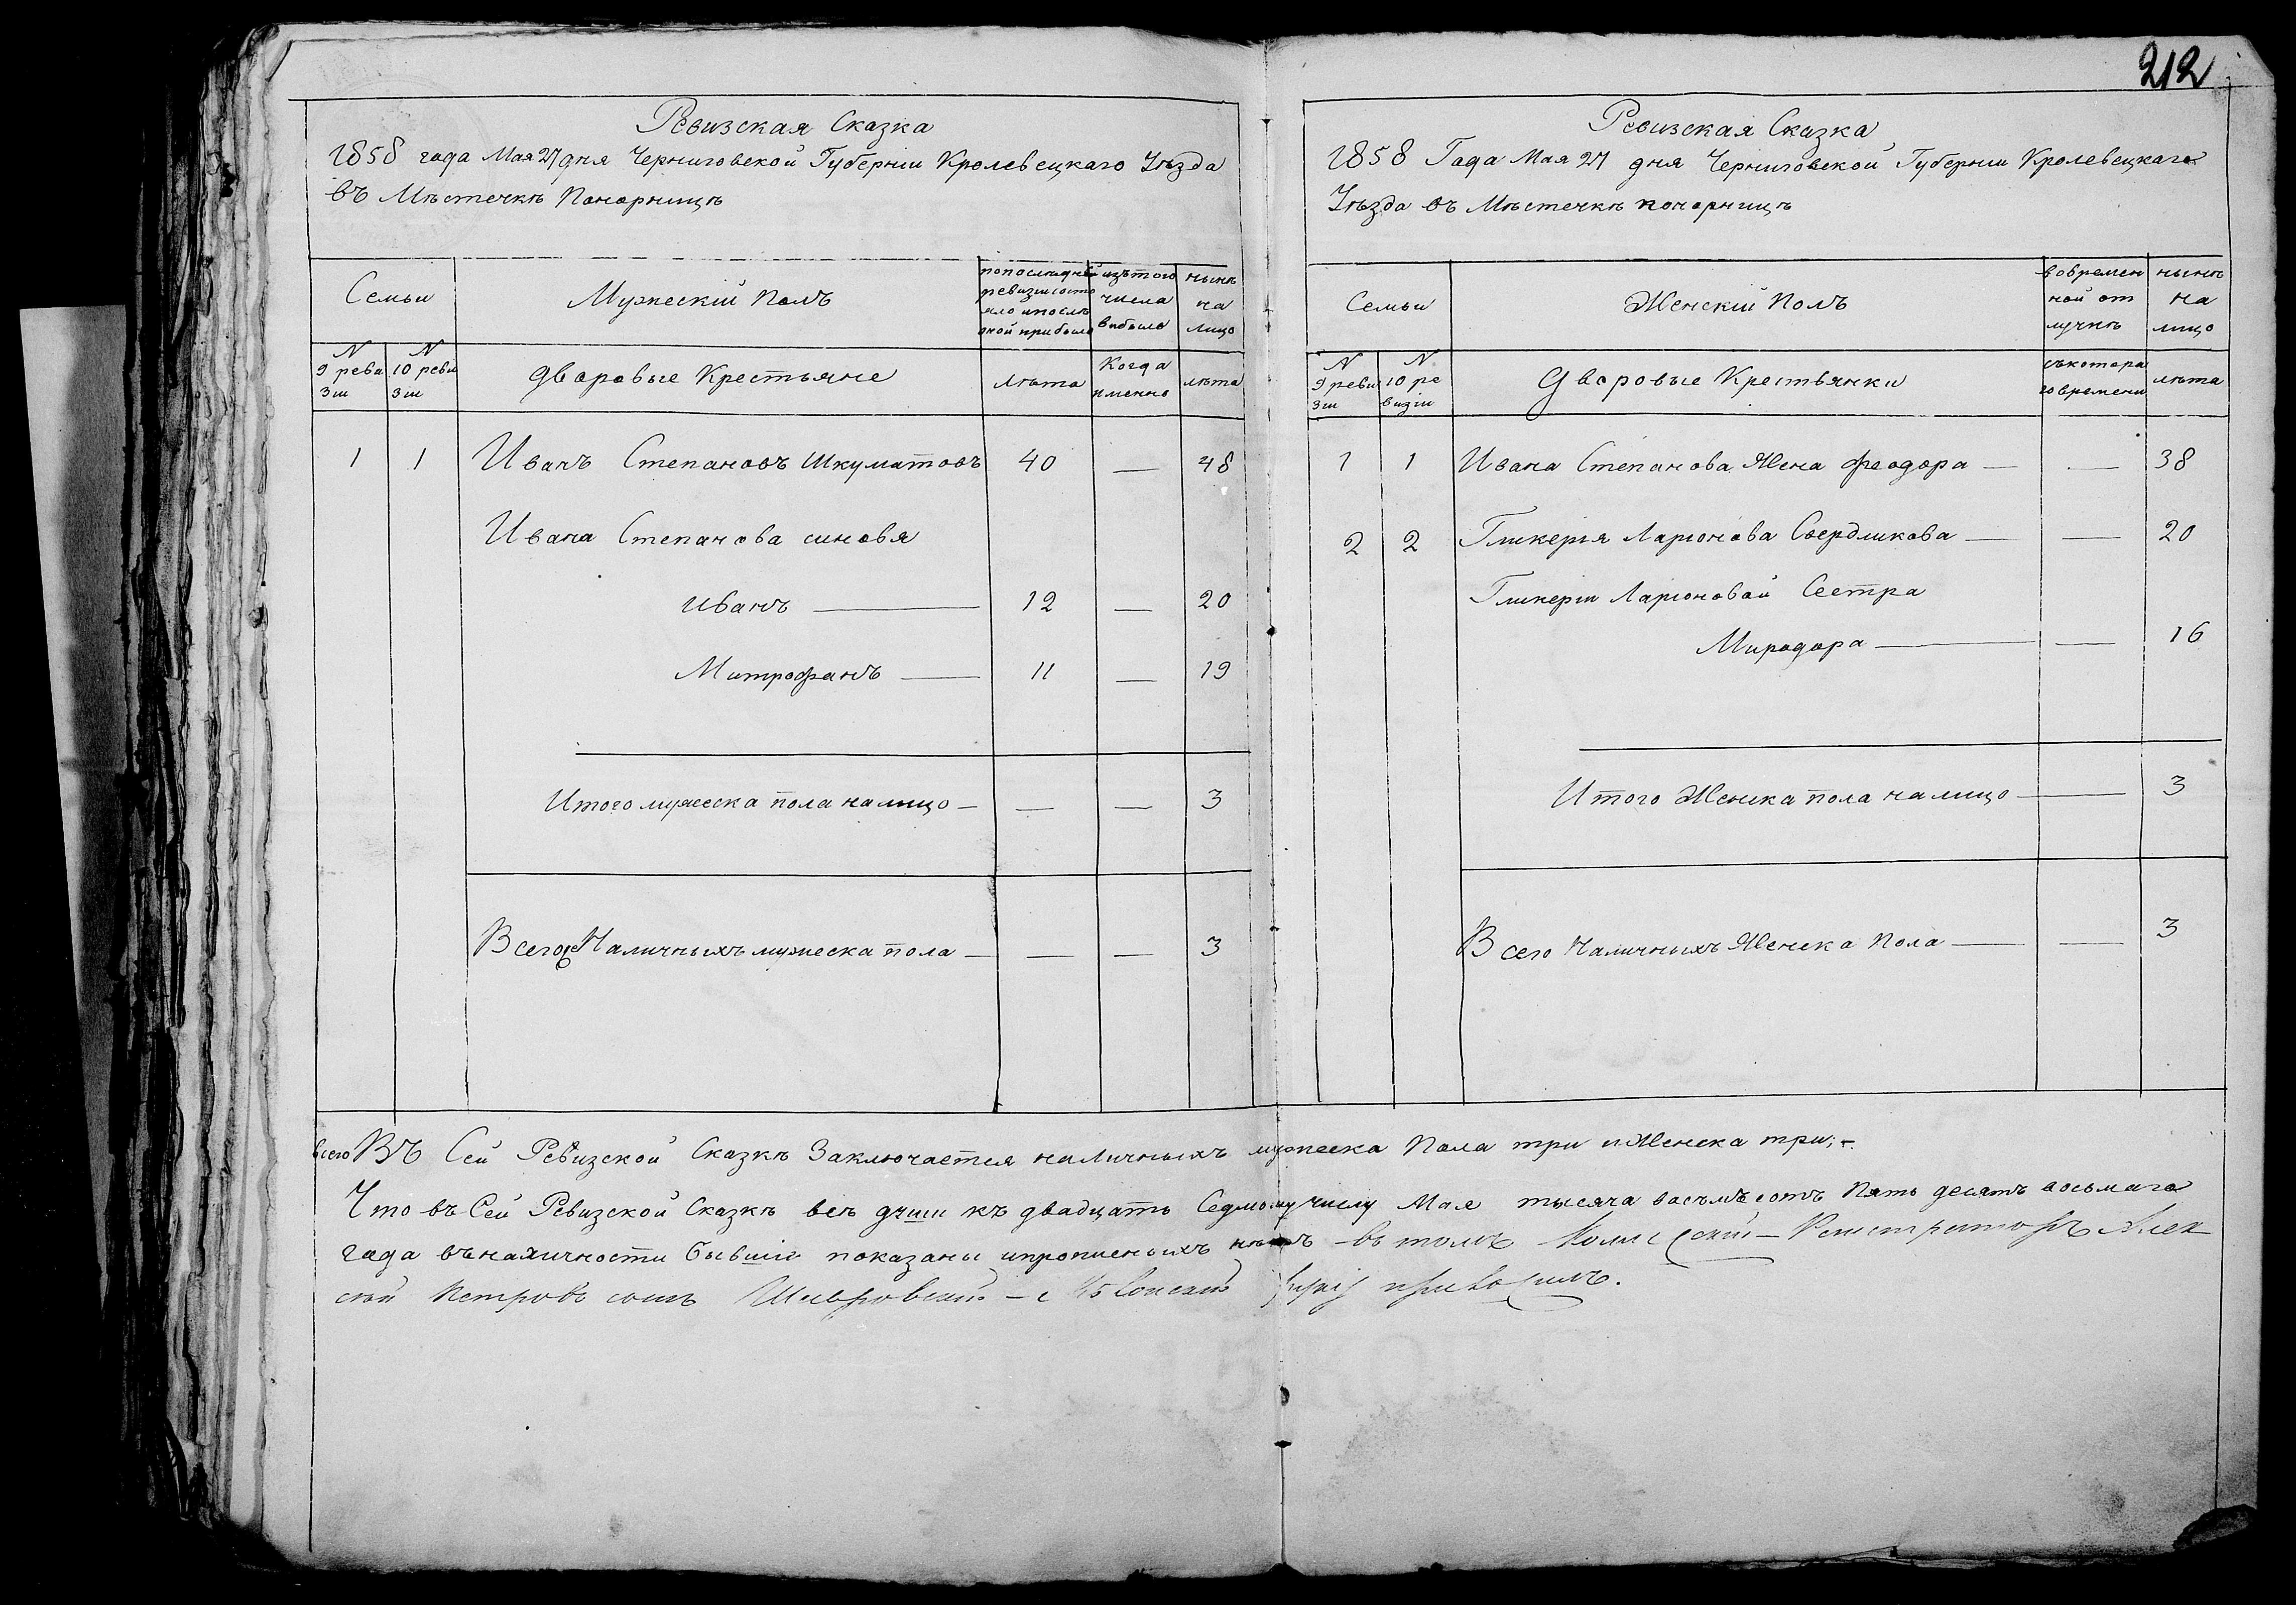 212
Ревизская Сказка
1858 года Мая 27 дня Черниговской Губерніи Кролевецкаго Уѣзда
въ Мѣстечкѣ Понорницѣ
Семьи
Мужескій Полъ
по послѣдней
ревизіи состо
яло и послѣ
оной прибыло
изътого
числа
выбыло
нынѣ
на
лицо
N
9 реви
зіи
N
10 реви
зіи
дворовые Крестьяне
лѣта
Когда
именно
лѣта
1 1 Иванъ Степановъ Шкуматовъ 40 — 48
Ивана Степанова синовя
Иванъ — 12 — 20
Митрофанъ — 11 — 19
Итого мужеска пола налицо — — — 3
Всего Наличныхъ мужеска пола — — — 3
Ревизская Сказка
1858 Года Мая 27 дня Черниговской Губерніи Кролевецкаго
Уѣзда въ Мѣстечкѣ понорницѣ
Семьи
Женскій Полъ
вовремен
ной от
лучкѣ
нынѣ
на
лицо
N
9 реви
зіи
N
10 ре
визіи
Дворовые Крестьянки
съкотора
го времени
лѣта
1 1 Ивана Степанова Жена Феодора — — 38
2 2 Гликерія Ларіонова Свердликова — — 20
Гликеріи Ларіоновой Сестра
Миродора — — 16
Итого Женска пола налицо — 3
Всего Наличныхъ Женска Пола — — 3
всего Въ Сей Ревизской Сказкѣ Заключается наличныхъ мужеска Пола три и Женска три;-
Что въ Сей Ревизской Сказкѣ всѣ души къ двадцать Седмому числу Мая тысяча восъмъсотъ Пять десятъ восьмаго
года вналичности бывшіе показаны ипрописныхъ нѣтъ - въ томъ Коллежскій - Регистраторъ Алек
сѣй Петровъ сынъ